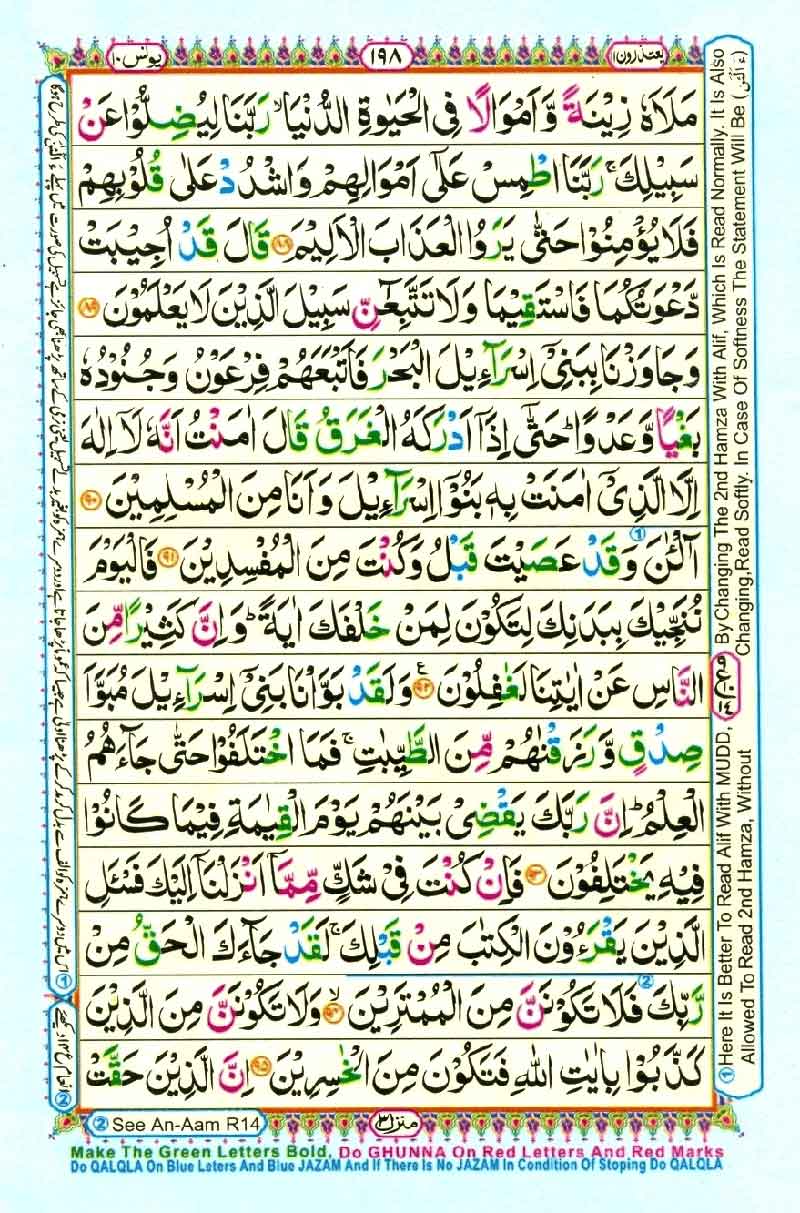 یونس ۱۰
۱۹۸
یعتذرون ۱۱
مَلَاَهٗ زِيْنَةً وَّاَمْوَالًا فِى الْحَيٰوةِ الدُّنْيَا ۙ رَبَّنَا لِيُضِلُّوْا عَنْ
سَبِيْلِكَ ۚ رَبَّنَا اطْمِسْ عَلٰٓى اَمْوَالِهِمْ وَاشْدُدْ عَلٰى قُلُوْبِهِمْ
فَلَا يُؤْمِنُوْا حَتّٰى يَرَوُا الْعَذَابَ الْاَلِيْمَ ۸۸ قَالَ قَدْ اُجِيْبَتْ
دَّعْوَتُكُمَا فَاسْتَقِيْمَا وَلَا تَتَّبِعٰٓنِّ سَبِيْلَ الَّذِيْنَ لَا يَعْلَمُوْنَ ۸۹
وَجَاوَزْنَا بِبَنِىْٓ اِسْرَآءِيْلَ الْبَحْرَ فَاَتْبَعَهُمْ فِرْعَوْنُ وَجُنُوْدُهٗ
بَغْيًا وَّعَدْوًا ؕ حَتّٰٓى اِذَآ اَدْرَكَهُ الْغَرَقُ قَالَ اٰمَنْتُ اَنَّهٗ لَآ اِلٰهَ
اِلَّا الَّذِىْٓ اٰمَنَتْ بِهٖ بَنُوْٓا اِسْرَآءِيْلَ وَاَنَا مِنَ الْمُسْلِمِيْنَ ۹۰
آٰلْــٰٔنَ وَقَدْ عَصَيْتَ قَبْلُ وَكُنْتَ مِنَ الْمُفْسِدِيْنَ ۹۱ فَالْيَوْمَ
نُنَجِّيْكَ بِبَدَنِكَ لِتَكُوْنَ لِمَنْ خَلْفَكَ اٰيَةً ؕ وَاِنَّ كَثِيْرًا مِّنَ
النَّاسِ عَنْ اٰيٰتِنَا لَغٰفِلُوْنَ ۹۲ وَلَقَدْ بَوَّاْنَا بَنِىْٓ اِسْرَآءِيْلَ مُبَوَّاَ
صِدْقٍ وَّرَزَقْنٰهُمْ مِّنَ الطَّيِّبٰتِ ۚ فَمَا اخْتَلَفُوْا حَتّٰى جَآءَهُمُ
الْعِلْمُ ؕ اِنَّ رَبَّكَ يَقْضِىْ بَيْنَهُمْ يَوْمَ الْقِيٰمَةِ فِيْمَا كَانُوْا
فِيْهِ يَخْتَلِفُوْنَ ۹۳ فَاِنْ كُنْتَ فِىْ شَكٍّ مِّمَّآ اَنْزَلْنَآ اِلَيْكَ فَسْــَٔلِ
الَّذِيْنَ يَقْرَءُوْنَ الْكِتٰبَ مِنْ قَبْلِكَ ۚ لَقَدْ جَآءَكَ الْحَقُّ مِنْ
رَّبِّكَ فَلَا تَكُوْنَنَّ مِنَ الْمُمْتَرِيْنَ ۙ ۹۴ وَلَا تَكُوْنَنَّ مِنَ الَّذِيْنَ
كَذَّبُوْا بِاٰيٰتِ اللّٰهِ فَتَكُوْنَ مِنَ الْخٰسِرِيْنَ ۹۵ اِنَّ الَّذِيْنَ حَقَّتْ
① Here It Is Better To Read Alif With MUDD, By Changing The 2nd Hamza With Alif, Which Is Read Normally. It Is Also
Allowed To Read 2nd Hamza, Without Changing,Read Softly. In Case Of Softness The Statement Will Be
② See An-Aam R14
منزل ۳
Make The Green Letters Bold, Do GHUNNA On Red Letters And Red Marks
Do QALQLA On Blue Leters And Blue JAZAM And If There Is No JAZAM In Condition Of Stoping Do QALQLA